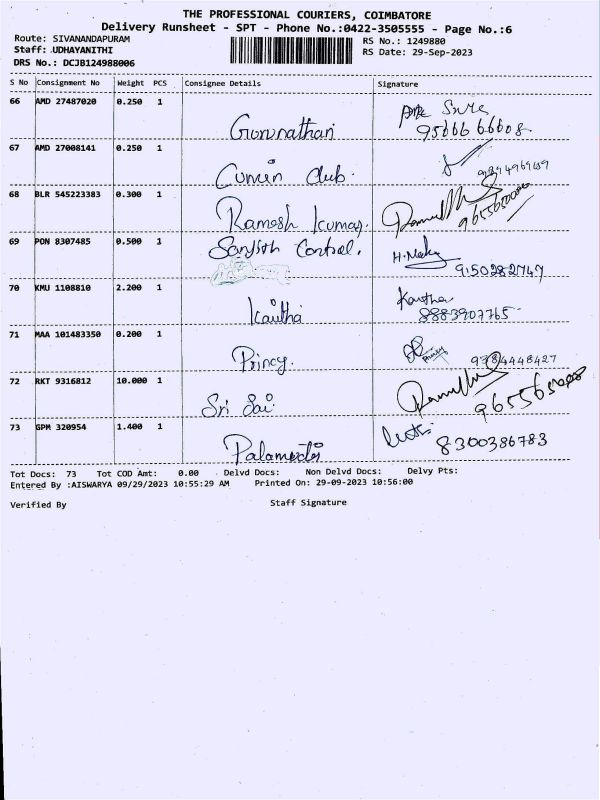 THE PROFESSIONAL COURIERS, COIMBATORE
Delivery Runsheet - SPT - Phone No.:0422-3505555 - Page No.:6
Route: SIVANANDAPURAM RS No.: 1249880
Staff: UDHAYANITHI RS Date: 29-Sep-2023
DRS No.: DCJB124988006
S No Consignment No Weight PCS Consignee Details Signature
66 AMD 27487020 0.250 1
Gurunathan
67 AMD 27008141 0.250 1
Cumin Club.
68 BLR 545223383 0.300 1
Ramesh Kumar.
69 PON 8307485 0.500 1
H. Malar
70 KMU 1108810 2.200 1
Kavitha
8883907765
71 MAA 101483350 0.200 1
Princy. 9384448427
72 RKT 9316812 10.000 1
Sri Sai
73 GPM 320954 1.400 1
8300386783
Tot Docs: 73 Tot COD Amt: 0.00 Delvd Docs: Non Delvd Docs: Delvy Pts:
Entered By :AISWARYA 09/29/2023 10:55:29 AM Printed On: 29-09-2023 10:56:00
Verified By Staff Signature